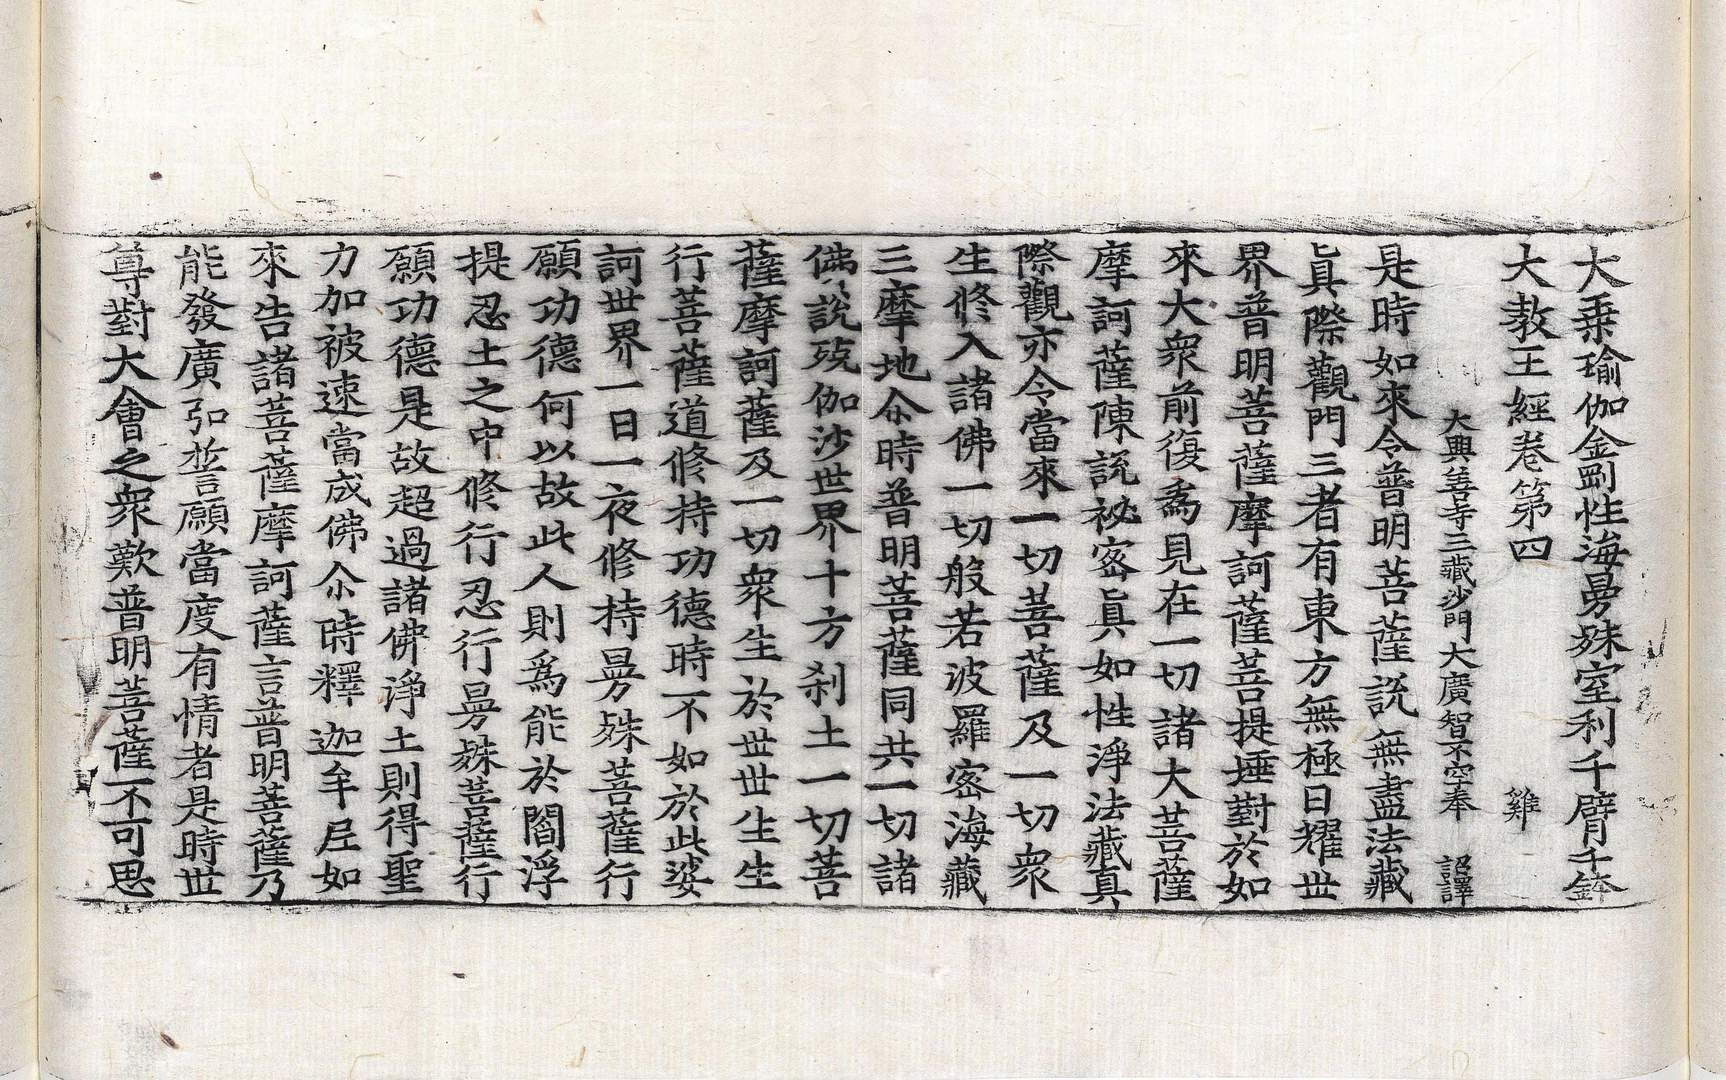 大乗瑜伽金剛性海曼殊室利千臂千鉢
大教王經卷第四　雞
大興善寺三藏沙門大廣智不空奉　詔譯
是時如來令普明菩薩說無盡法藏
眞際觀門三者有東方無極日耀世
界普明菩薩摩訶薩菩提埵對於如
來大衆前復爲見在一切諸大菩薩
摩訶薩陳說祕密眞如性淨法藏真
際觀亦令當來一切菩薩及一切衆
生修入諸佛一切般若波羅密海藏
三摩地尒時普明菩薩同共一切諸
佛說殑伽沙世界十方剎土一切菩
薩摩訶薩及一切衆生於世世生生
行菩薩道修持功德時不如於此娑
訶世界一日一夜修持曼殊菩薩行
願功德何以故此人則爲能於閻浮
提忍土之中修行忍行曼殊菩薩行
願功德是故超過諸佛淨土則得聖
力加被速當成佛尒時釋迦牟尼如
來告諸菩薩摩訶薩言普明菩薩乃
能發廣弘誓願當度有情者是時世
尊對大會之衆歎普明菩薩不可思